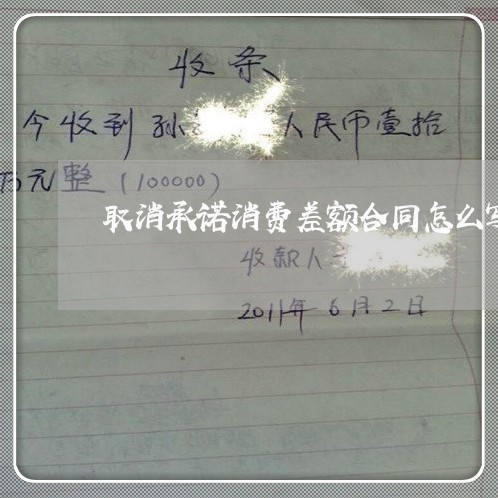 收条
今收到孙 人民币壹拾
万元整（100000）
取消承诺消费差额合同怎么写
收款人
2011年6月2日